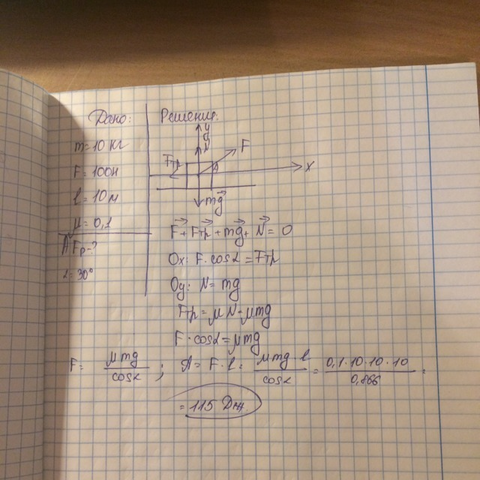 Дано:
m = 10 кг
F = 100н
l = 10 м
μ = 0,1
Aтр-?
∠ 30°
Решение:
y
N
F
Fтр
X
mg
F + Fтр + mg + N = 0
Ox: F·cosα = Fтр
Oy: N = mg
Fтр = μN = μmg
F·cosα = μmg
F = μmg / cosα ; A = F·l = μmg l / cosα = 0,1·10·10·10 / 0,866 =
= 115 Дж